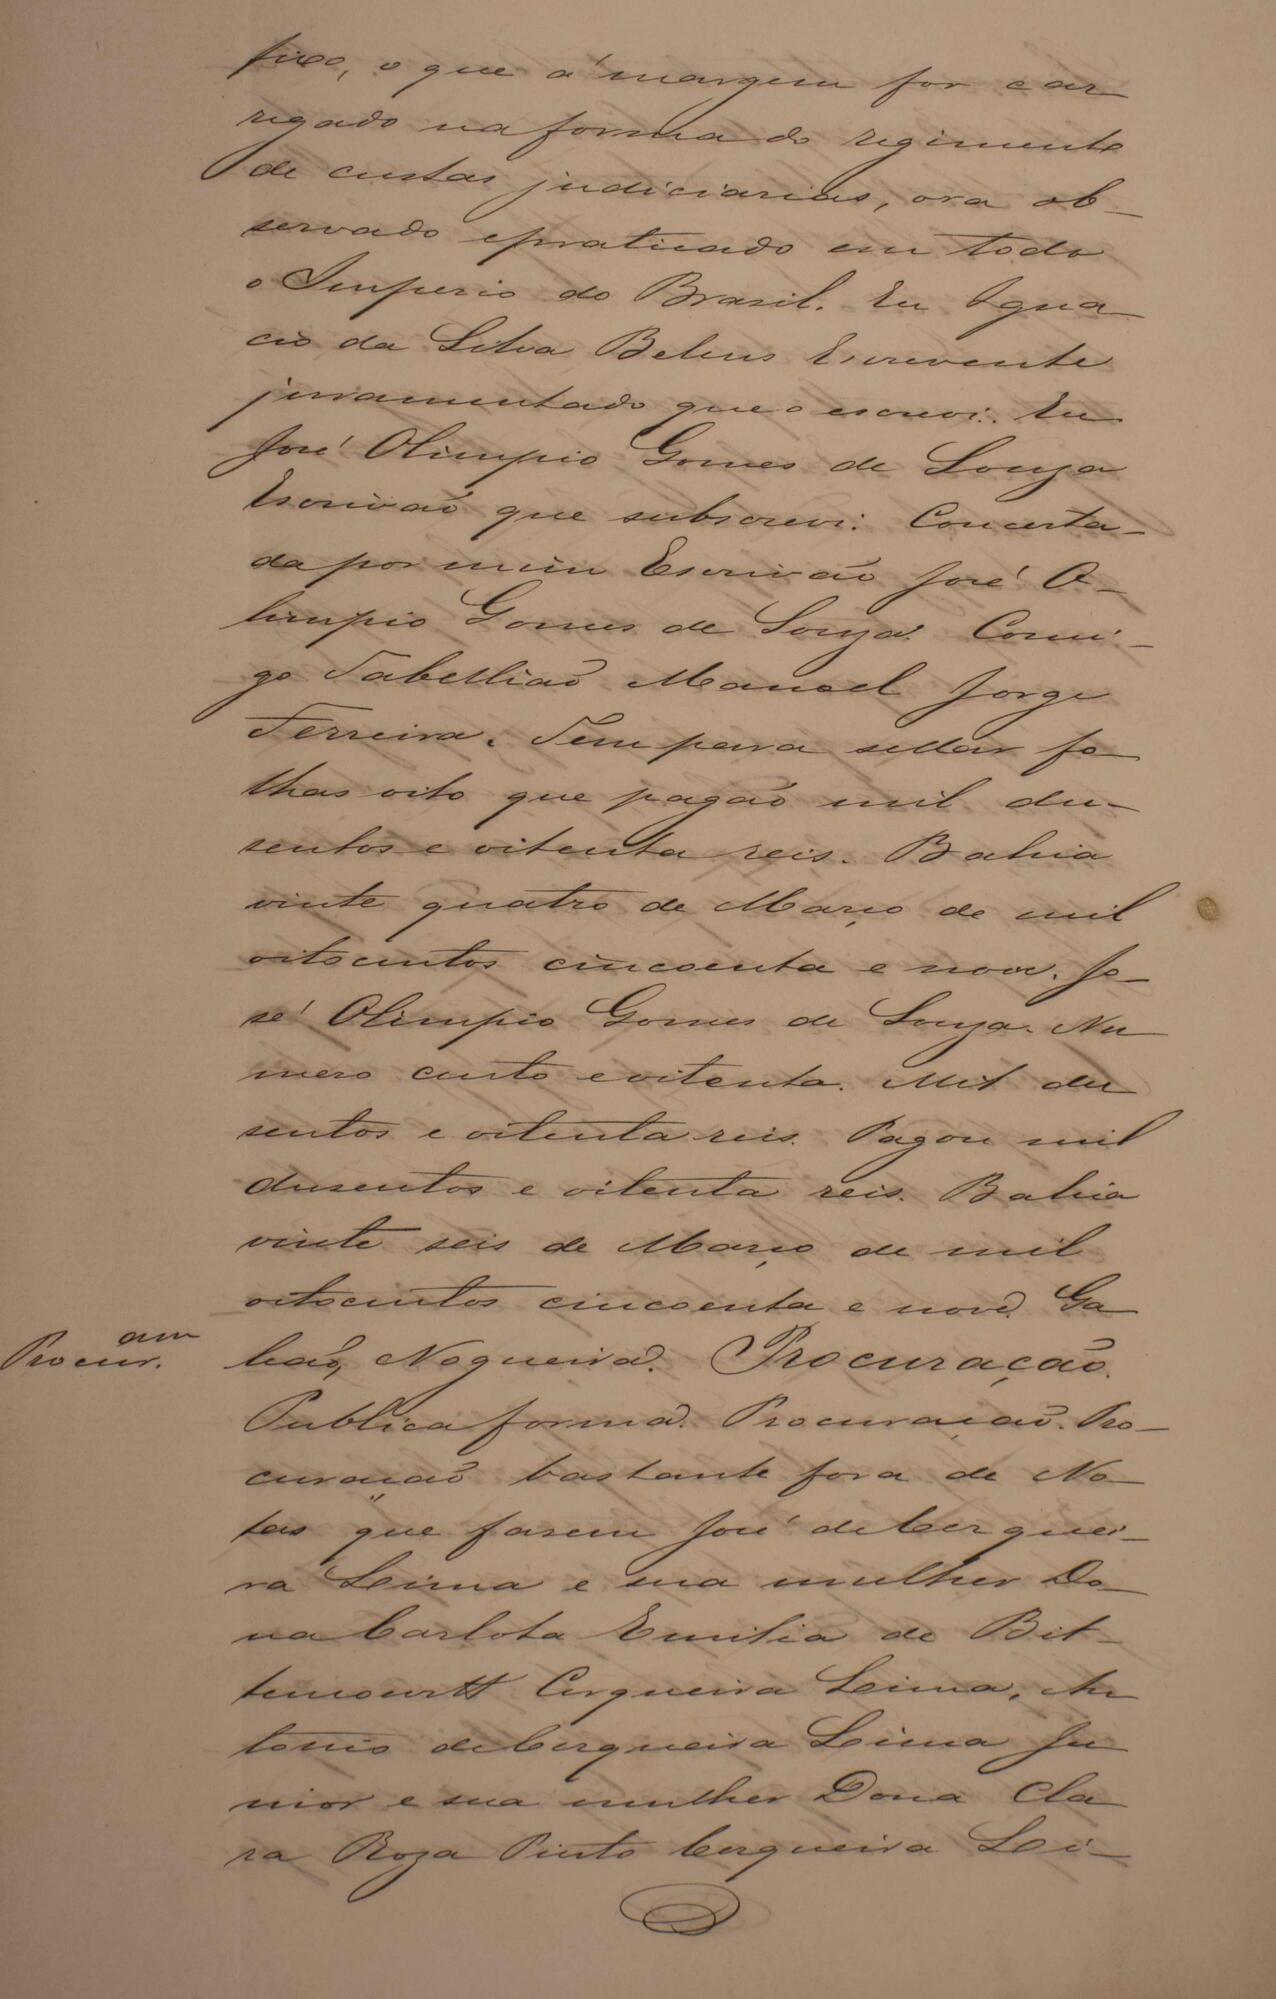 fixo, o que á margem for car
regado na forma do regimento
de custas judiciarias, ora ob-
servado e praticado em todo
o Imperio do Brasil. Eu Igna
cio da Silva Belens Escrevente
juramentado que o escrevi. Eu
José Olimpio Gomes de Souza
Escrivão que subscrevi. Concerta-
da por mim Escrivão José O-
limpio Gomes de Souza. Comi-
go Tabellião Manoel Jorge
Ferreira. Tem para sellar fo
lhas oito que pagão mil du-
sentos e oitenta reis. Bahia
vinte quatro de Março de mil
oitocentos cincoenta e nove. Jo-
sé Olimpio Gomes de Souza. Nu
mero cento e oitenta. Mil du
sentos e oitenta reis. Pagou mil
dusentos e oitenta reis. Bahia
vinte seis de Março de mil
oitocentos cincoenta e nove. Ga
Procur.am
leão, Nogueira. Procuração.
Publica forma. Procuração. Pro-
curação bastante fora de No-
tas que fasem José de Cerquei-
ra Leima e sua mulher Do-
na Carlota Emilia de Bit-
tencourtt Cerqueira Leima, An
tonio de Cerqueira Leima Ju
nior e sua mulher Dona Cla
ra Roza Pinto Cerqueira Lei-